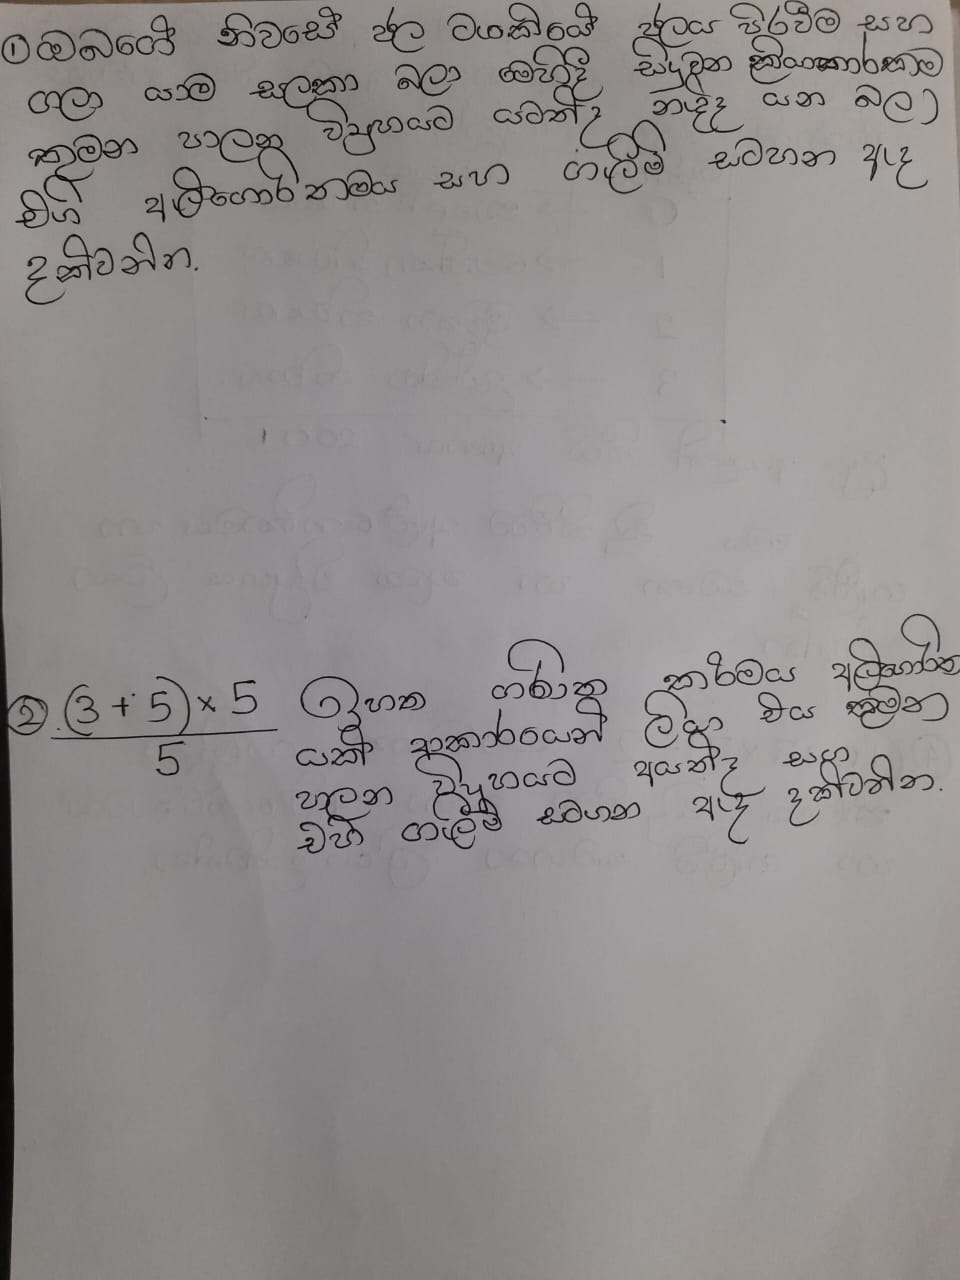 ① ඔබගේ නිවසේ ජල ටැංකියේ ජලය පිරවීම සහ
ගලා යාම සලකා බලා මෙහිදී සිදුවන ක්‍රියාකාරකම
කුමන පාලන ව්‍යුහයට යටත්ද නැද්ද යන බලා
එහි අල්ගොරිතමය සහ ගැලීම් සටහන ඇද
දක්වන්න.
② (3 + 5) × 5 ඉහත ගණිත කර්මය අල්ගොරිත
5 යක් ආකාරයෙන් ලියා එය කුමන
පාලන ව්‍යුහයට අයත්ද සහ
එහි ගැලීම් සටහන ඇඳ දක්වන්න.